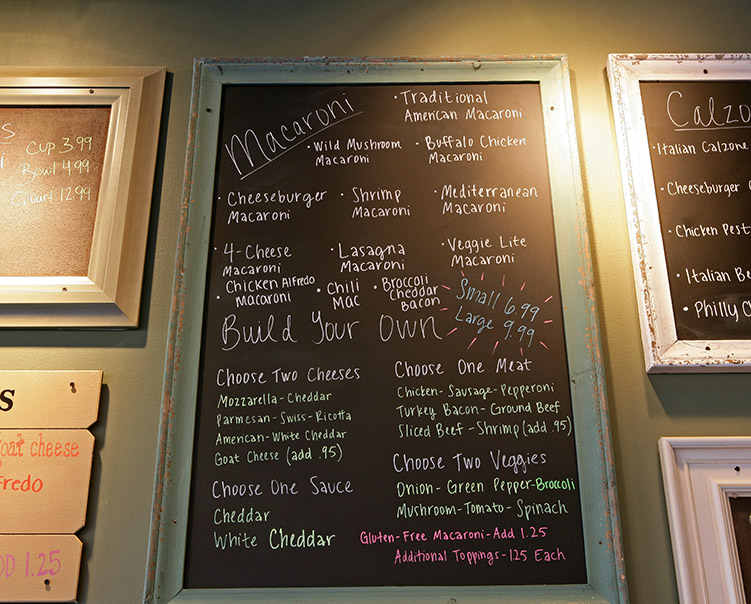 S
Cup 3.99
Bowl 4.99
Quart 12.99
s
oat cheese
fredo
DD 1.25
Macaroni
• Traditional
American Macaroni
• Wild Mushroom
Macaroni
• Buffalo Chicken
Macaroni
• Cheeseburger
Macaroni
• Shrimp
Macaroni
• Mediterranean
Macaroni
• 4-Cheese
Macaroni
• Lasagna
Macaroni
• Veggie Lite
Macaroni
• Chicken Alfredo
Macaroni
• Chili
Mac
• Broccoli
Cheddar
Bacon
Small 6.99
Large 9.99
Build Your Own
Choose Two Cheeses
Mozzarella-Cheddar
Parmesan-Swiss-Ricotta
American-White Cheddar
Goat Cheese (add .95)
Choose One Sauce
Cheddar
White Cheddar
Choose One Meat
Chicken-Sausage-Pepperoni
Turkey Bacon-Ground Beef
Sliced Beef-Shrimp (add .95)
Choose Two Veggies
Onion-Green Pepper-Broccoli
Mushroom-Tomato-Spinach
Gluten-Free Macaroni-Add 1.25
Additional Toppings-125 Each
Calzo
•Italian Calzone
•Cheeseburger
•Chicken Pest
•Italian Be
•Philly C